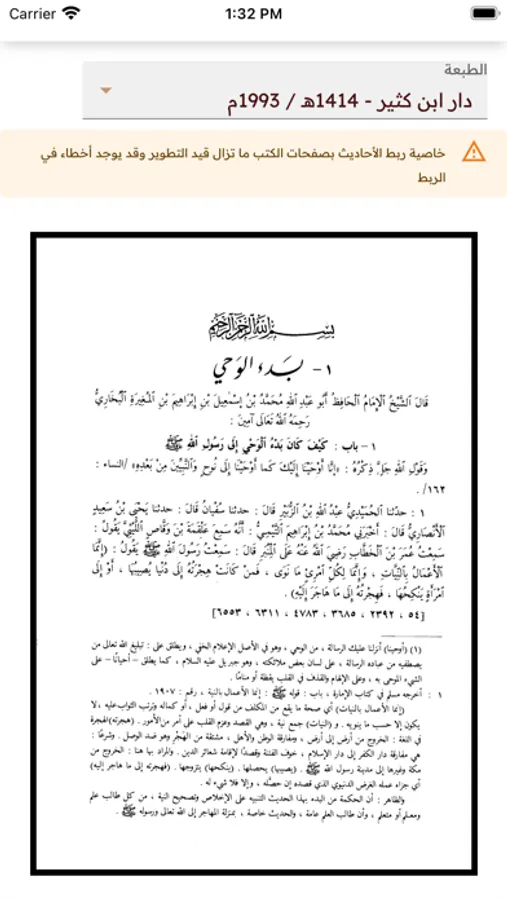 Carrier
1:32 PM
الطبعة
دار ابن كثير - 1414هـ / 1993م
خاصية ربط الأحاديث بصفحات الكتب ما تزال قيد التطوير وقد يوجد أخطاء في
الربط
بسم الله الرحمن الرحيم
١- بَدء الوَحي
قَالَ الشَّيْخُ الْإِمَامُ الْحَافِظُ أَبُو عَبْدِ اللهِ مُحَمَّدُ بْنُ إِسْمَعِيلَ بْنِ إِبْرَاهِيمَ بْنِ الْمُغِيرَةِ الْبُخَارِيُّ
رَحِمَهُ اللهُ تَعَالَى آمِينَ :
١ - باب : كَيْفَ كَانَ بَدْءُ الْوَحْيِ إِلَى رَسُولِ اللهِ ﷺ
وَقَوْلِ اللهِ جَلَّ ذِكْرُهُ : «إِنَّا أَوْحَيْنَا إِلَيْكَ كَمَا أَوْحَيْنَا إِلَى نُوحٍ وَالنَّبِيِّينَ مِنْ بَعْدِهِ» /النساء :
١٦٢/ .
١ : حدّثنا الحُمَيْدِيُّ عَبْدُ اللهِ بْنُ الزُّبَيْرِ قَالَ : حدثنا سُفْيَانُ قَالَ : حدثنا يَحْيَى بْنُ سَعِيدٍ
الْأَنْصَارِيُّ قَالَ : أَخْبَرَنِي مُحَمَّدُ بْنُ إِبْرَاهِيمَ التَّيْمِيُّ : أَنَّهُ سَمِعَ عَلْقَمَةَ بْنَ وَقَّاصٍ اللَّيْثِيَّ يَقُولُ :
سَمِعْتُ عُمَرَ بْنَ الْخَطَّابِ رَضِيَ اللهُ عَنْهُ عَلَى الْمِنْبَرِ قَالَ : سَمِعْتُ رَسُولَ اللهِ ﷺ يَقُولُ : (إِنَّمَا
الْأَعْمَالُ بِالنِّيَّاتِ ، وَإِنَّمَا لِكُلِّ امْرِئٍ مَا نَوَى ، فَمَنْ كَانَتْ هِجْرَتُهُ إِلَى دُنْيَا يُصِيبُهَا ، أَوْ إِلَى
امْرَأَةٍ يَنْكِحُهَا ، فَهِجْرَتُهُ إِلَى مَا هَاجَرَ إِلَيْهِ) .
[٥٤ ، ٢٣٩٢ ، ٣٦٨٥ ، ٤٧٨٣ ، ٦٣١١ ، ٦٥٥٣]
(١) (أوحينا) أنزلنا عليك الرسالة ، من الوحي ، وهو في الأصل الإعلام الخفي ، ويطلق على : تبليغ الله تعالى من
يصطفيه من عباده الرسالة ، على لسان بعض ملائكته ، وهو جبريل عليه السلام ، كما يطلق - أحيانًا - على
الشيء الموحى به ، وعلى الإلهام والقذف في القلب يقظة أو منامًا .
١ : أخرجه مسلم في كتاب الإمارة ، باب : قوله ﷺ : إنما الأعمال بالنية ، رقم : ١٩٠٧ .
(إنما الأعمال بالنيات) أي صحة ما يقع من المكلف من قول أو فعل ، أو كماله وترتب الثواب عليه ، لا
يكون إلا حسب ما ينويه . و (النيات) جمع نية ، وهي القصد وعزم القلب على أمر من الأمور . (هجرته) الهجرة
في اللغة : الخروج من أرض إلى أرض ، ومفارقة الوطن والأهل ، مشتقة من الهَجْر وهو ضد الوصل . وشرعًا :
هي مفارقة دار الكفر إلى دار الإسلام ، خوف الفتنة وقصدًا لإقامة شعائر الدين . والمراد بها هنا : الخروج من
مكة وغيرها إلى مدينة رسول الله ﷺ . (يصيبها) يحصلها . (ينكحها) يتزوجها . (فهجرته إلى ما هاجر إليه)
أي جزاء عمله الغرض الدنيوي الذي قصده إن حصّله ، وإلا فلا شيء له .
والظاهر : أن الحكمة من البدء بهذا الحديث التنبيه على الإخلاص وتصحيح النية ، من كل طالب علم
ومعلم أو متعلم ، وأن طالب العلم عامة ، والحديث خاصة ، بمنزلة المهاجر إلى الله تعالى ورسوله ﷺ .